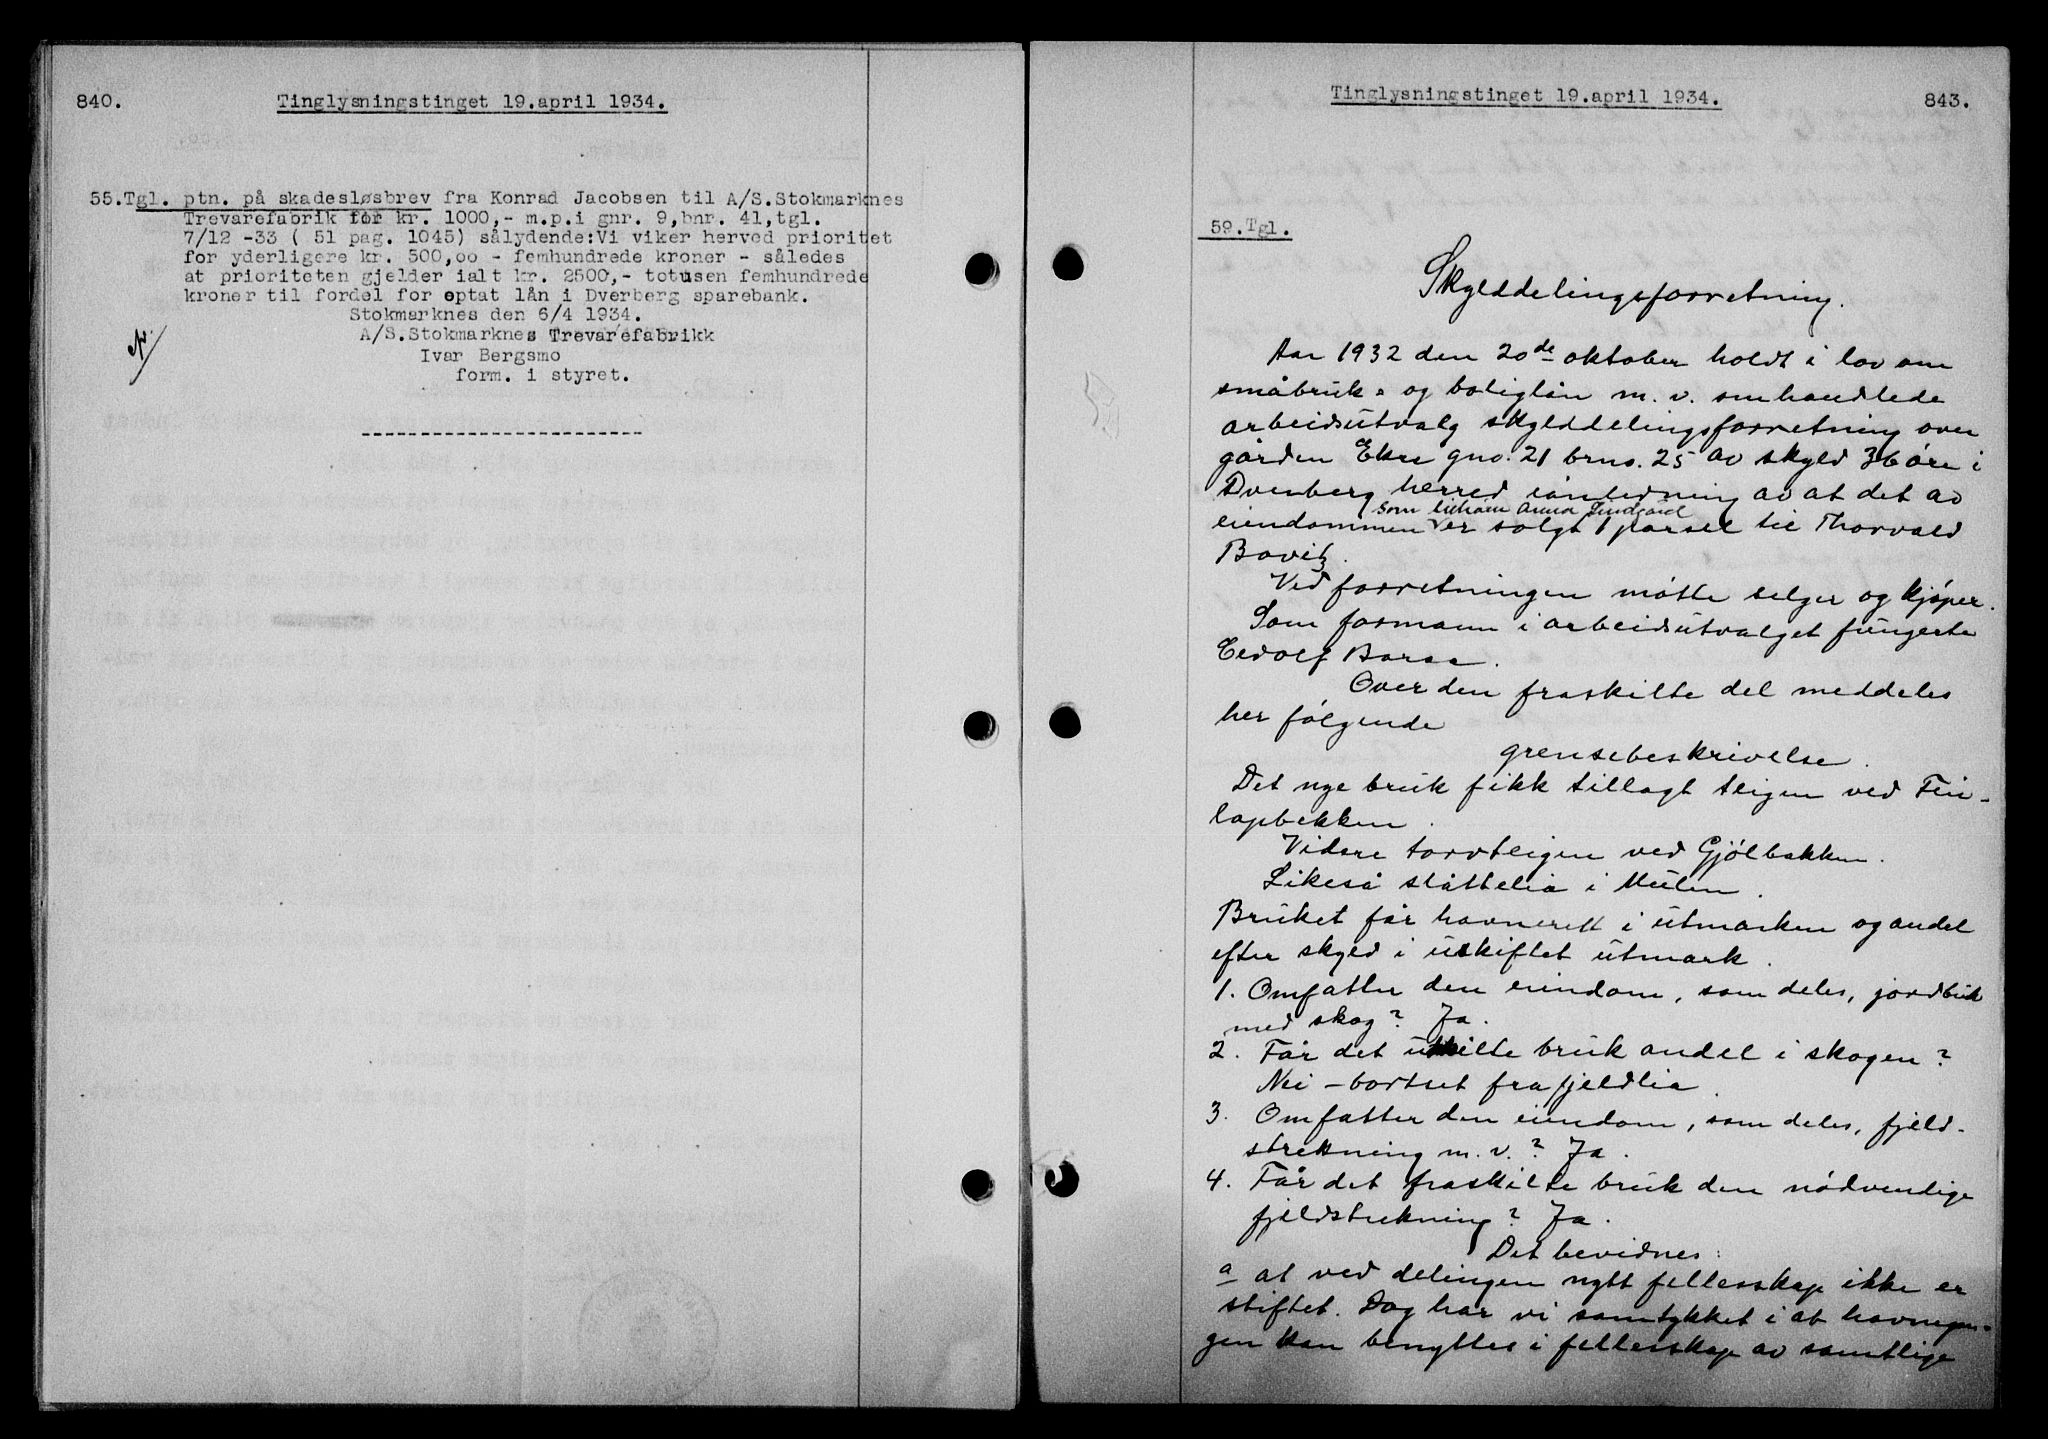 840.
Tinglysningstinget 19.april 1934.
55.Tgl. ptn. på skadesløsbrev fra Konrad Jacobsen til A/S.Stokmarknes
Trevarefabrik for kr. 1000,- m.p.i gnr. 9,bnr. 41,tgl.
7/12 -33 ( 51 pag. 1045) sålydende:Vi viker herved prioritet
for yderligere kr. 500,oo - femhundrede kroner - således
at prioriteten gjelder ialt kr. 2500,- totusen femhundrede
kroner til fordel for optat lån i Dverberg sparebank.
Stokmarknes den 6/4 1934.
A/S.Stokmarknes Trevarefabrikk
Ivar Bergsmo
form. i styret.
Tinglysningstinget 19.april 1934.
843.
59.Tgl.
Skylddelingsforretning.
Aar 1932 den 20de oktober holdt i lov om
småbruk- og boliglån m. v. omhandlede
arbeidsutvalg skylddelingsforretning over
gården Ekre gno. 21 brno. 25 av skyld 36 øre i
Dverberg herred i anledning av at det av
eiendommen som er solgt 1 parsel til Thorvald
Bovitz.
Ved forretningen møtte selger og kjøper.
Som formann i arbeidsutvalget fungerte
Eidolf
Over den fraskilte del meddeles
her følgende
grensebeskrivelse.
Det nye bruk fikk tillagt teigen ved Fin-
lapbekken.
Videre torvteigen ved Gjølbakken.
Likeså slåttelia i Mulen.
Bruket får havnerett i utmarken og andel
efter skyld i uskiftet utmark.
1. Omfatter den eiendom, som deles, jordbruk
med skog? Ja.
2. Får det utskilte bruk andel i skogen?
Nei - bortset fra fjeldlia
3. Omfatter den eiendom, som deles, fjeld-
strekning m. v.? Ja.
4. Får det fraskilte bruk den nødvendige
fjeldstrekning? Ja.
Det bevidnes:
a at ved delingen nytt fellesskap ikke er
stiftet. Dog har vi samtykket i at havnegan-
gen kan benyttes i fellesskap av samtlige